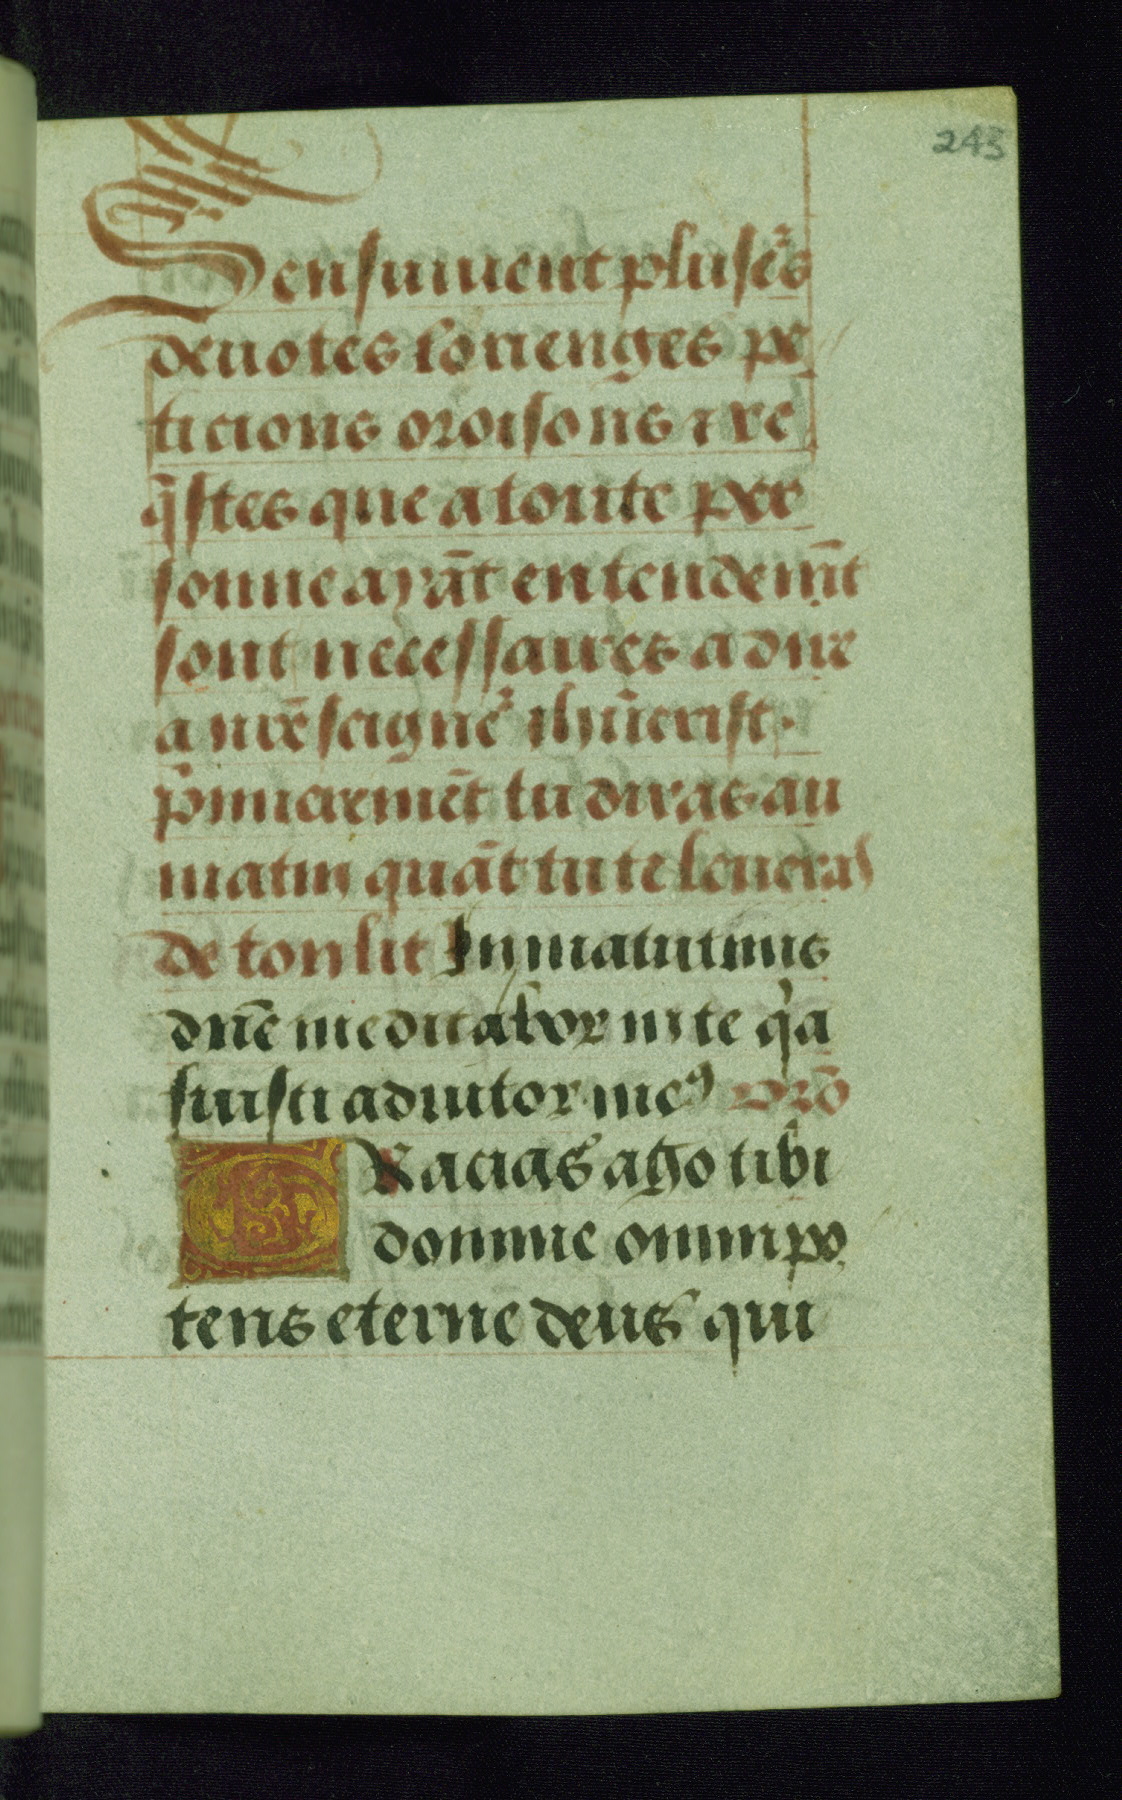 243
Sensuiuent pluseῑs
deuotes louenges pe
ticions oroisons ⁊ re
q̄stes que a toute per
sonne ayāt entendem̄t
sont necessaires a dire
a nr̄e seigne᷑ ihūcrist.
p̄mieremēt tu diras au
matin quāt tu te leueras
de ton lit In matutinis
dn̄e meditabor in te q̉a
fuisti adiutor me⁹ Orō
Racias ago tibi
domine omnipo
tens eterne deus qui